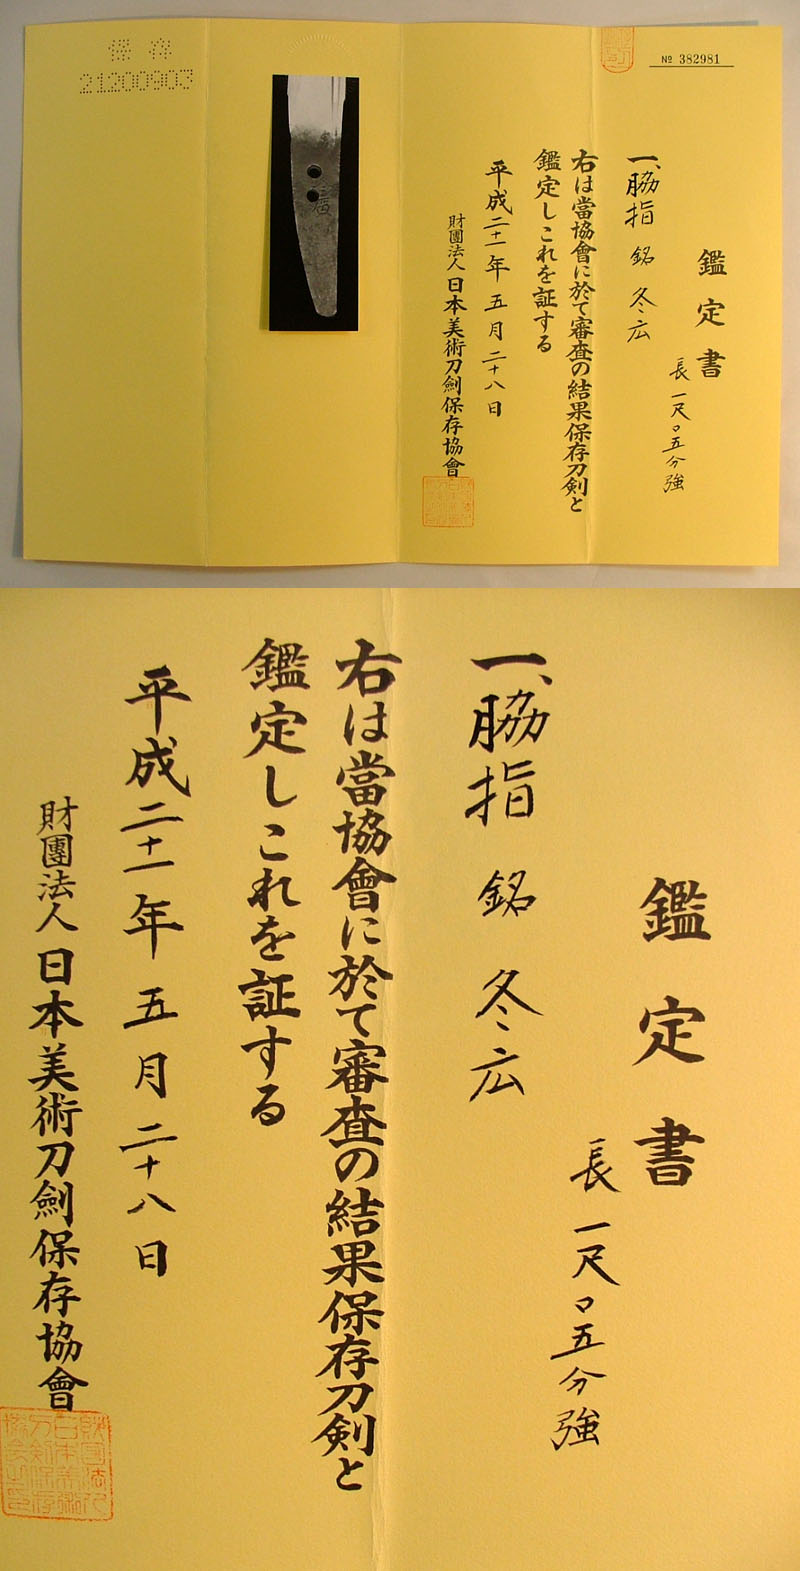 保存
21200903
№ 382981
鑑定書
長一尺〇五分強
一、脇指 銘 冬広
右は當協會に於て審査の結果保存刀剣と
鑑定しこれを証する
平成二十一年五月二十八日
財團法人日本美術刀劍保存協會
鑑定書
長一尺〇五分強
一、脇指 銘 冬広
右は當協會に於て審査の結果保存刀剣と
鑑定しこれを証する
平成二十一年五月二十八日
財團法人日本美術刀劍保存協會